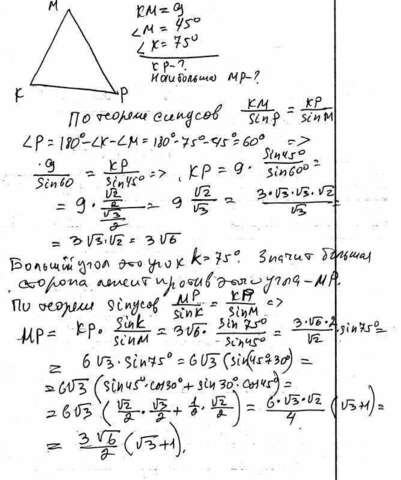 M
K
P
KM = 9
∠M = 45°
∠K = 75°
KP - ?
Наибольша MP - ?
По теореме синусов KM/sin P = KP/sin M
∠P = 180° - ∠K - ∠M = 180° - 75° - 45° = 60° =>
9/sin 60 = KP/sin 45° => KP = 9 · sin 45°/sin 60° =
= 9 · (√2/2)/(√3/2) = 9 √2/√3 = 3·√3·√3·√2/√3 =
= 3√3·√2 = 3√6
Больший угол это угол K = 75°. Значит большая
сторона лежит против этого угла - MP.
По теореме sinусов MP/sin K = KP/sin M =>
MP = KP · sin K/sin M = 3√6 · sin 75°/sin 45° = 3·√6·2/√2 · sin 75° =
= 6√3 · sin 75° = 6√3 (sin 45+30°) =
= 6√3 (sin 45° · cos 30° + sin 30° · cos 45°) =
= 6√3 (√2/2 · √3/2 + 1/2 · √2/2) = 6·√3·√2/4 (√3+1) =
= 3√6/2 (√3+1).